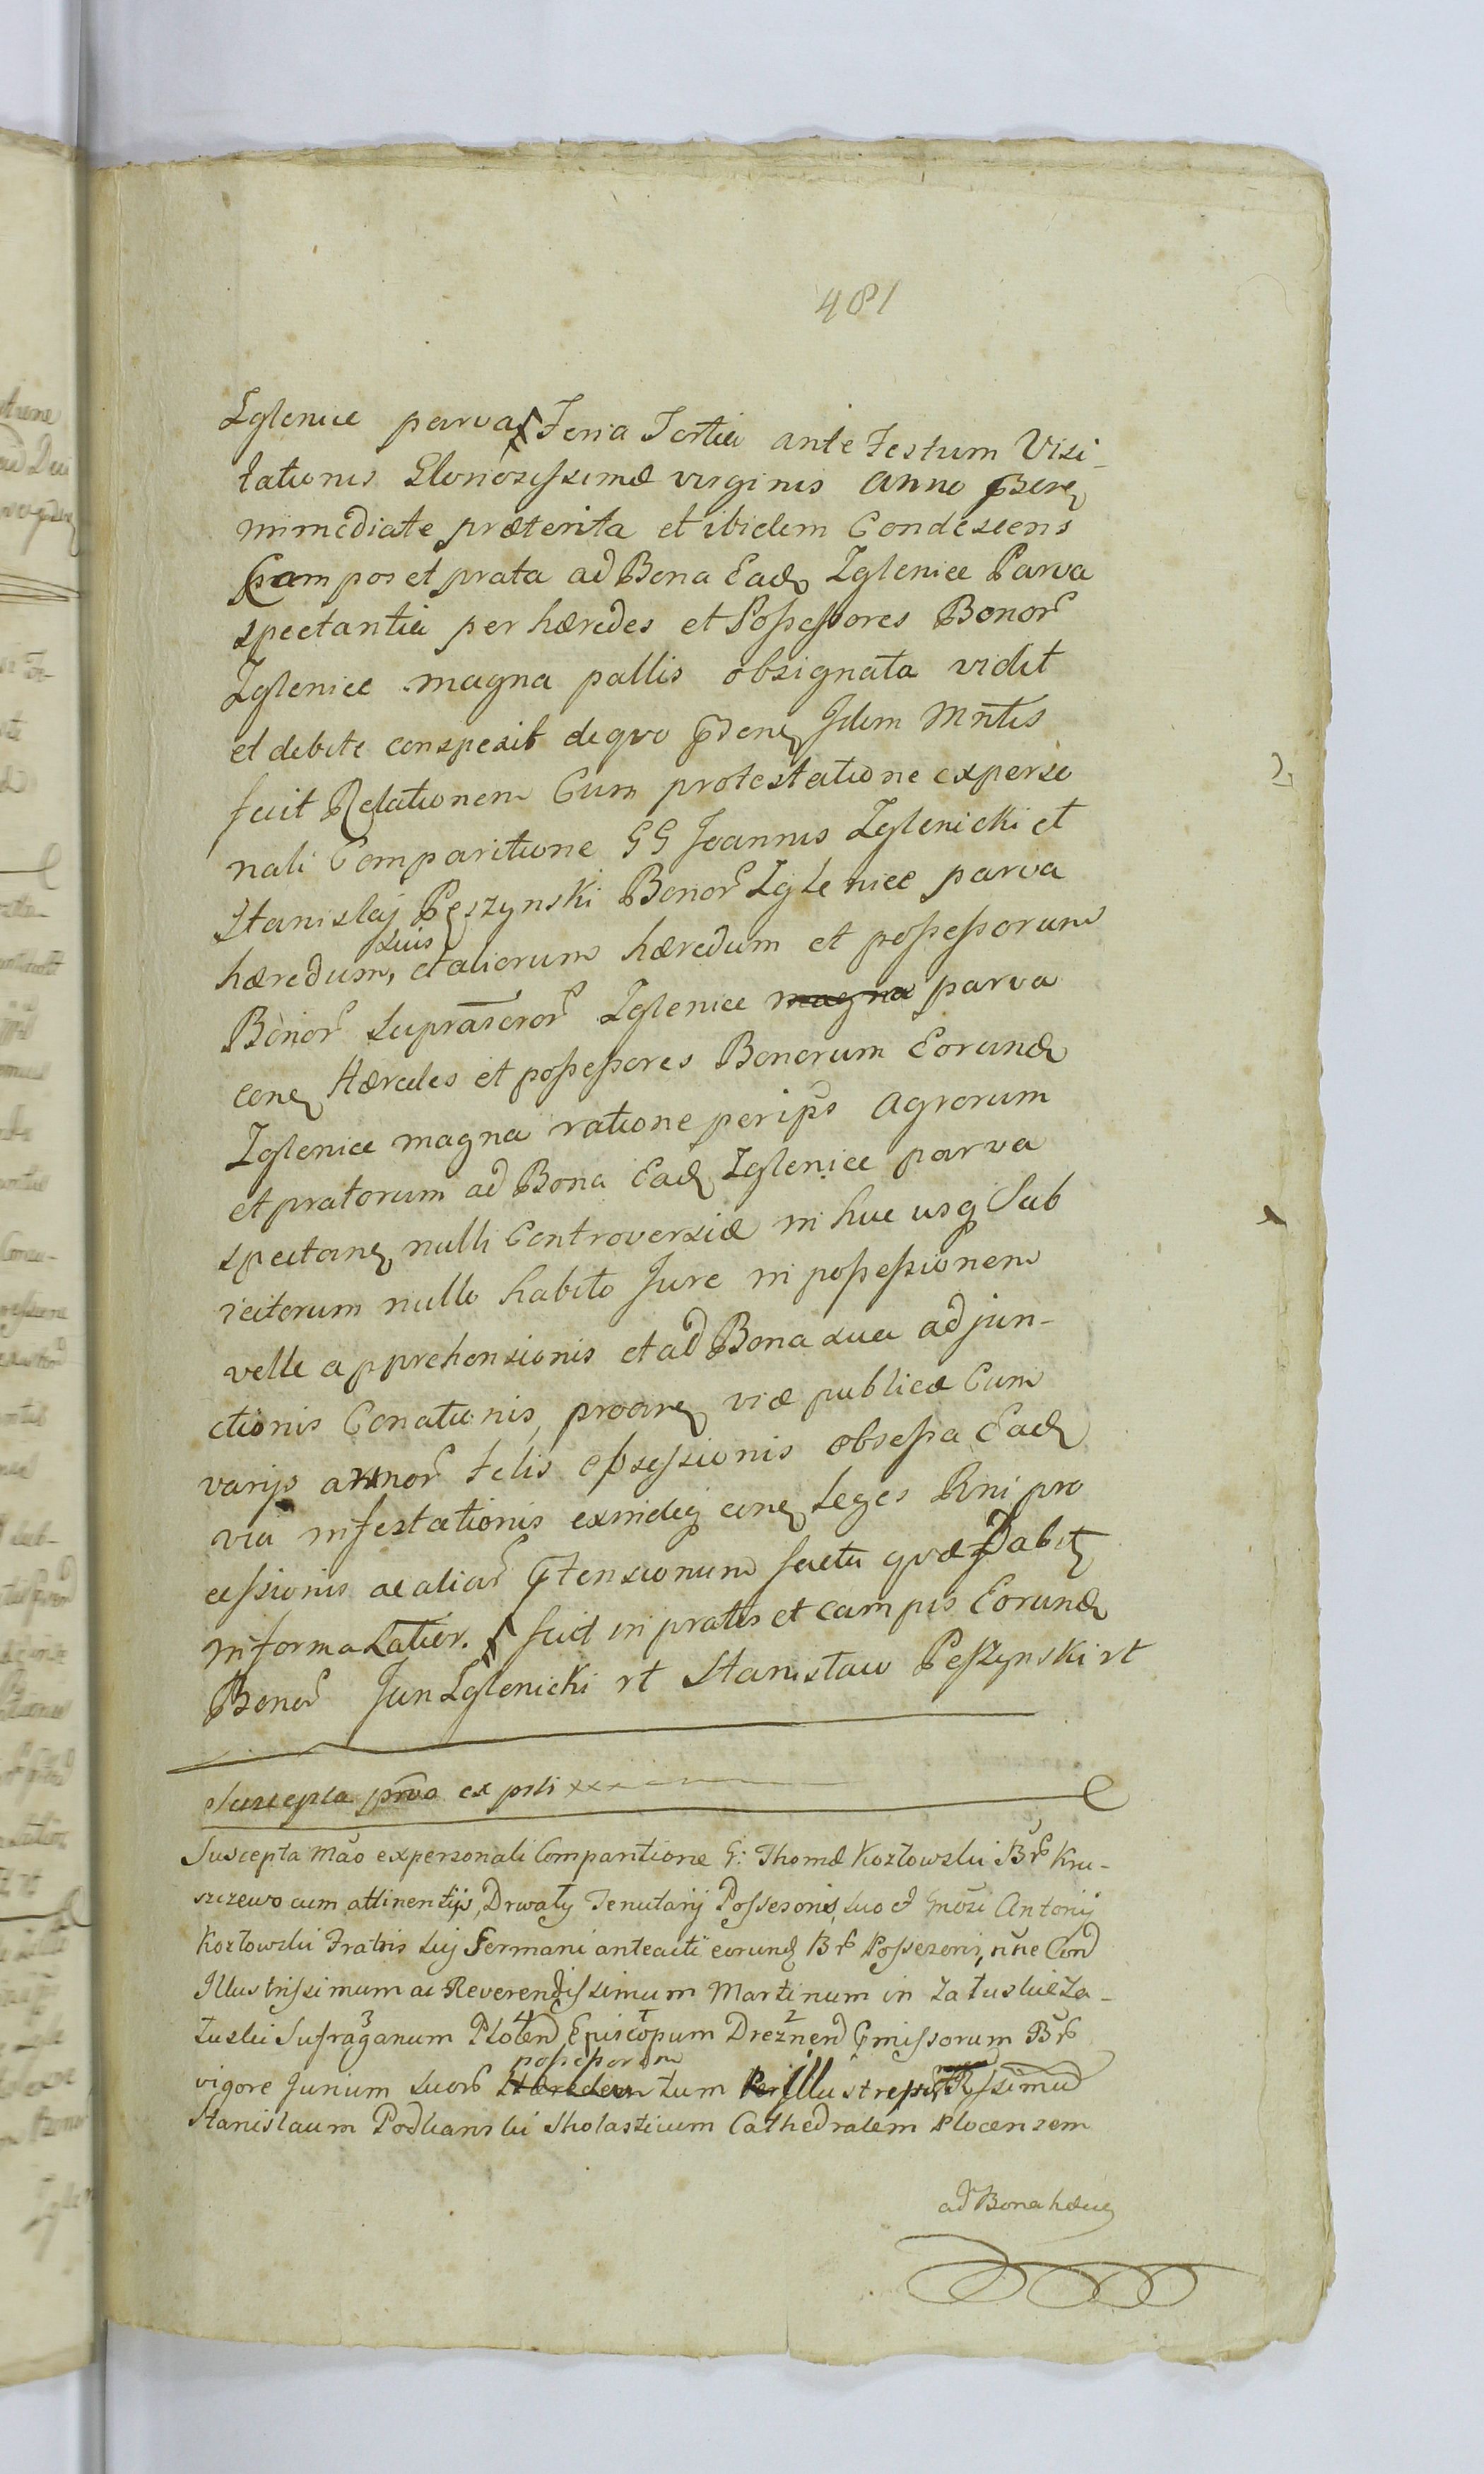 481
Zglenice parva Feria Tertia ante Festum Visi-
tationis Gloriosissimæ virginis anno
immediate præterita et ibidem Condescens
Campos et prata ad Bona Ead Zglenice Parva
spectantia per hæredes et Possessores Bonor
Zglenice magna pallis obsignata vidit
et debite conspexit de quo Idem Mntis
fecit Relationem Cum protestatione experso
nali Comparitione GG Joannis Zglenicki et
Stanislaj Pęszynski Bonor Zglenice parva
suis
hæredum, et aliorum hæredum et possessorum
Bonor suprascror Zglenice magna parva
cone Hæredes et possessores Bonorum Eorund
Zglenice magna ratione per ips Agrorum
et pratorum ad Bona Ead Zglenice parva
spectan nulli Controversiæ in huc usq Sub
iectorum nullo habito Jure in possessionem
velle apprehensionis et ad Bona sua adjun-
ctionis Conationis, viæ publicæ Cum
varijs armor telis obsessa Ead
via infestationis exindeq cone Leges Rni pro
cessionis ac aliar tensionum factu quæ Dabit
informa Latior. fecit in pratis et campis Eorund
Bonor Jan Zglenicki rt Stanisław Peszynski rt
Suscepta ex prli
Suscepta mão expersonali Comparitione G: Thomæ Kozłowski Br Kru-
szewo cum attinentijs, Drwały Tenutarij Possesoris, suo et Gnosi Antonij
Kozłowski Fratris sui Germani anteacti eorund Br Possezoris, nne Cond
Illustrissimum ac Reverendissimum Martinum in Załuskie Za-
łuski Sufraganum Plocen Episcopum Dreznen Br
possessorum
vigore Jurium suor Hæredem tum Illustre simum
Stanislaum Podkanski Sholasticum Cathedralem Plocensem
ad Bona hæc